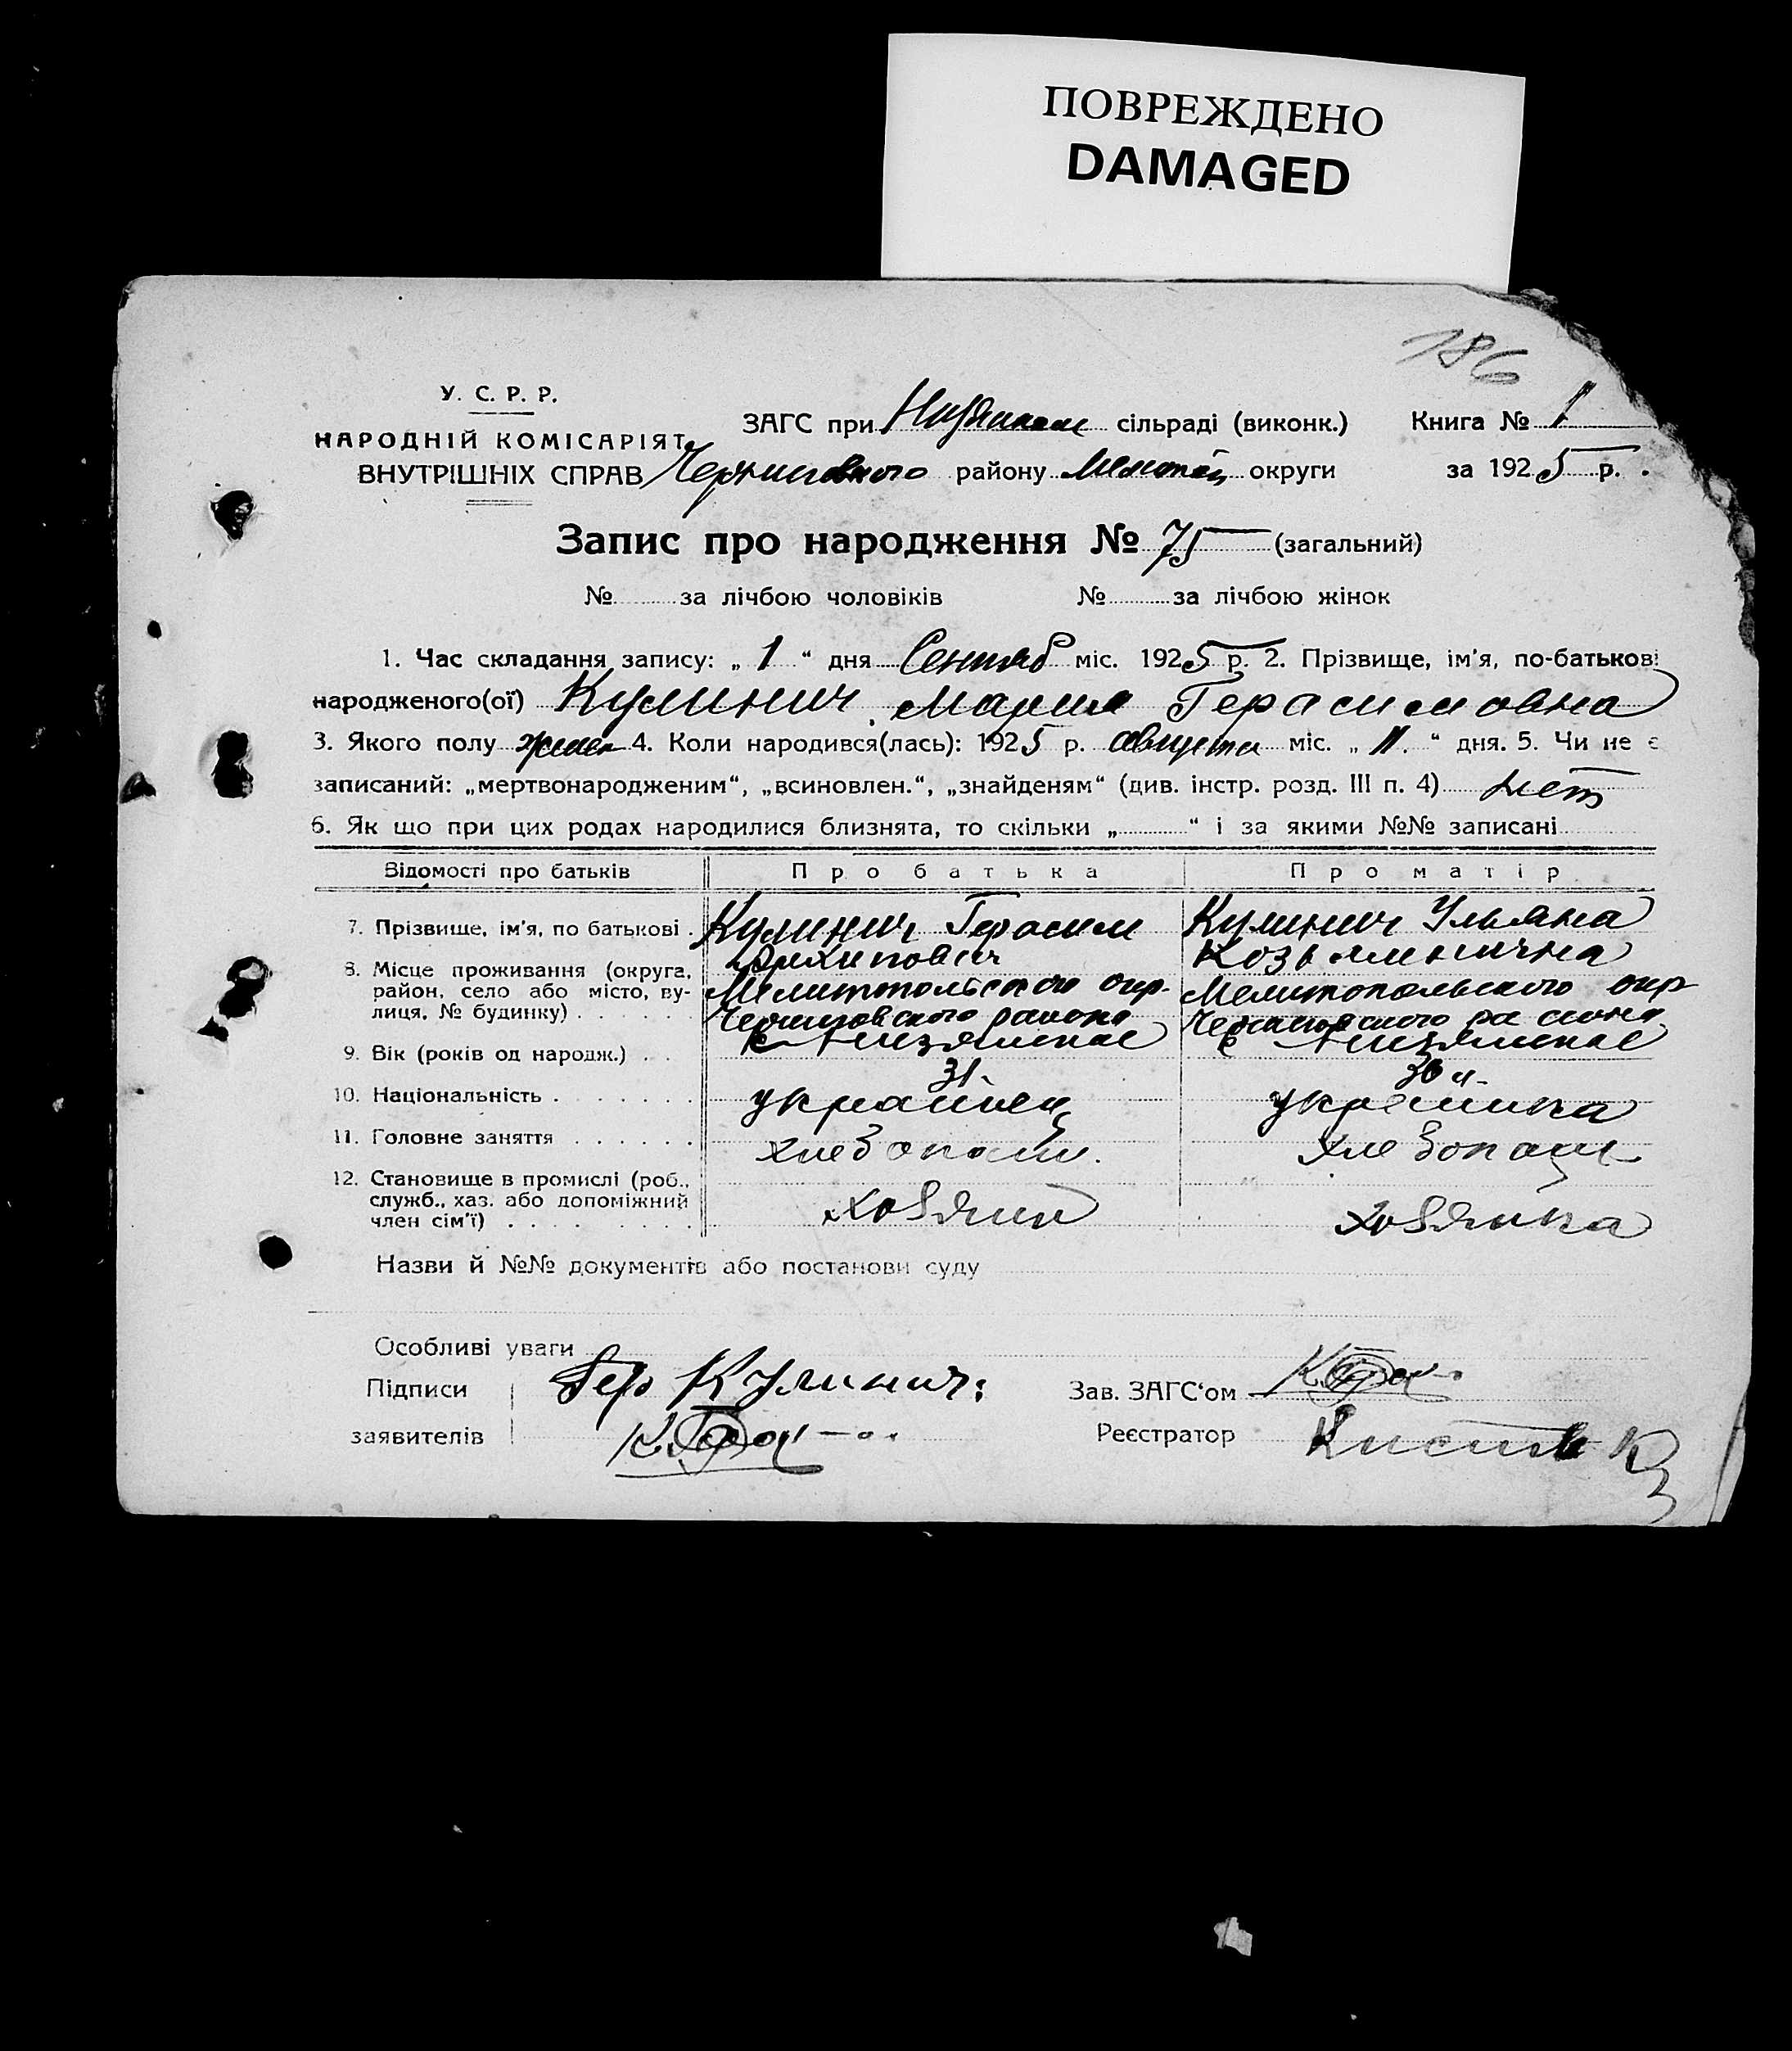 ПОВРЕЖДЕНО
DAMAGED
186
У. С. Р. Р.
НАРОДНІЙ КОМІСАРІЯТ
ВНУТРІШНІХ СПРАВ
ЗАГС при сільраді (виконк.) Книга № 1
Черниговского району Мелитоп округи за 1925 р.
Запис про народження № 75 (загальний)
№ за лічбою чоловіків № за лічбою жінок
1. Час складання запису: „ 1 “ дня Сентяб міс. 1925 р. 2. Прізвище, ім'я, по-батькові
народженого(ої) Кулинич Мария Герасимовна
3. Якого полу женск 4. Коли народився(лась): 1925 р. августа міс. „ 11. “ дня. 5. Чи не є
записаний: „мертвонародженим“, „всиновлен.“, „знайденям“ (див. інстр. розд. III п. 4) нет
6. Як що при цих родах народилися близнята, то скільки „ “ і за якими №№ записані
Відомості про батьків Про батька Про матір
7. Прізвище, ім'я, по батькові Кулинич Герасим Кулинич Ульяна
Архипович Козьминична
8. Місце проживання (округа, район, село або місто, вулиця, № будинку) Мелитопольского окр. Мелитопольского окр
Черниговского района Черниговского района
9. Вік (років од народж.)
31 30
10. Національність украинец украинка
11. Головне заняття хлебопаш. хлебопаш
12. Становище в промислі (роб., служб., хаз. або допоміжний член сім'ї) хозяин хозяйка
Назви й №№ документів або постанови суду
Особливі уваги
Підписи заявителів Гер Кулинич Зав. ЗАГС‘ом
Реєстратор